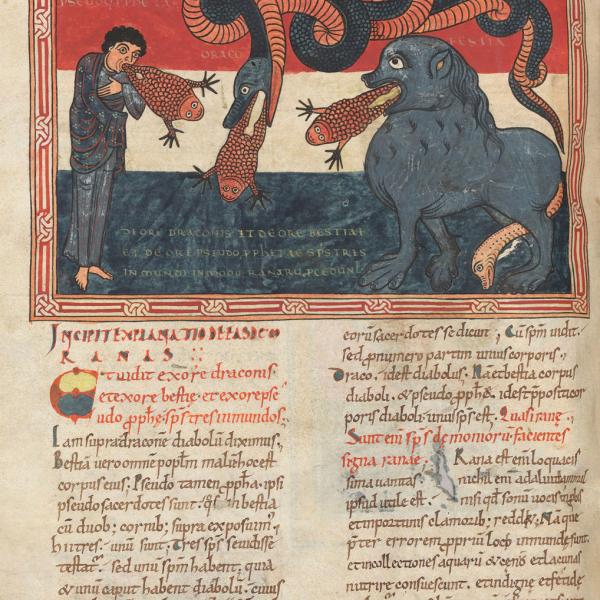 PSEUDO PPHETA
DRACO
BESTIA
DE ORE DRACONIS ET DE ORE BESTIAE
ET DE ORE PSEUDO PPHETAE SPS TRES
INMUNDI IN MODU RANARU PCEDUNT
INCIPIT EXPLANATIO DE
RANAS
Et vidit ex ore draconis
et ex ore bestie . et ex ore pse
udo pphe . sps tres inmundos ;
Iam supra dracone diabolu diximus ,
Bestia vero omne poplm malu . hoc est
corpus eius ; Pseudo tamen pphe . ipsi
pseudo sacerdotes sunt . in bestia
cu duob ; cornib ; supra exposuim ,
unu sunt . Tres sps se vidisse
testat . sed unu spm habent . quia
& unu caput habent diabolu . cuius
sacerdotes se dicunt ; Cu spm vidit .
sed p numero partiu unius corporis ,
Draco . id est diabolus ; Na et bestia corpus
diaboli . & pseudo pph& . id est ppositi cor
poris diaboli . unu sps est . Quasi rane ,
Sunt em sps demonioru facientes
signa ranae . Rana est em loquacis
sima vanitas . nichil em ad
ipsud utile est .
et inportunis clamorib ; redd& , Na que
pter errorem ppriu loci inmunde sunt .
et in collectiones aquaru & ceni et lacunas
nutrire consuescunt . et indigne et fetide